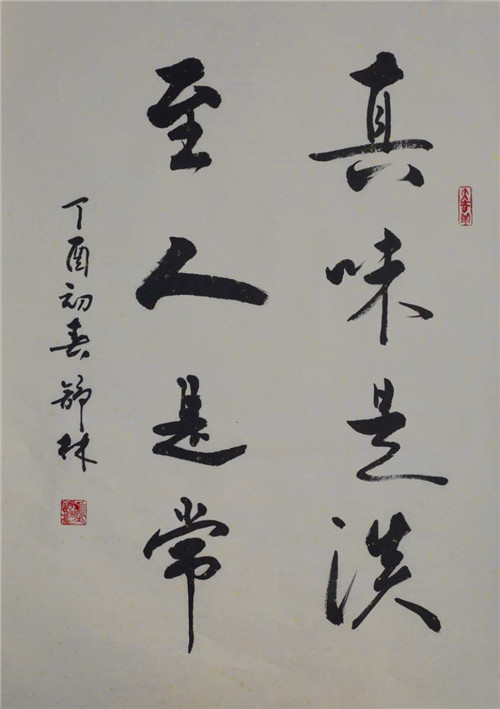 真味是淡
至人是常
丁酉初春舒林